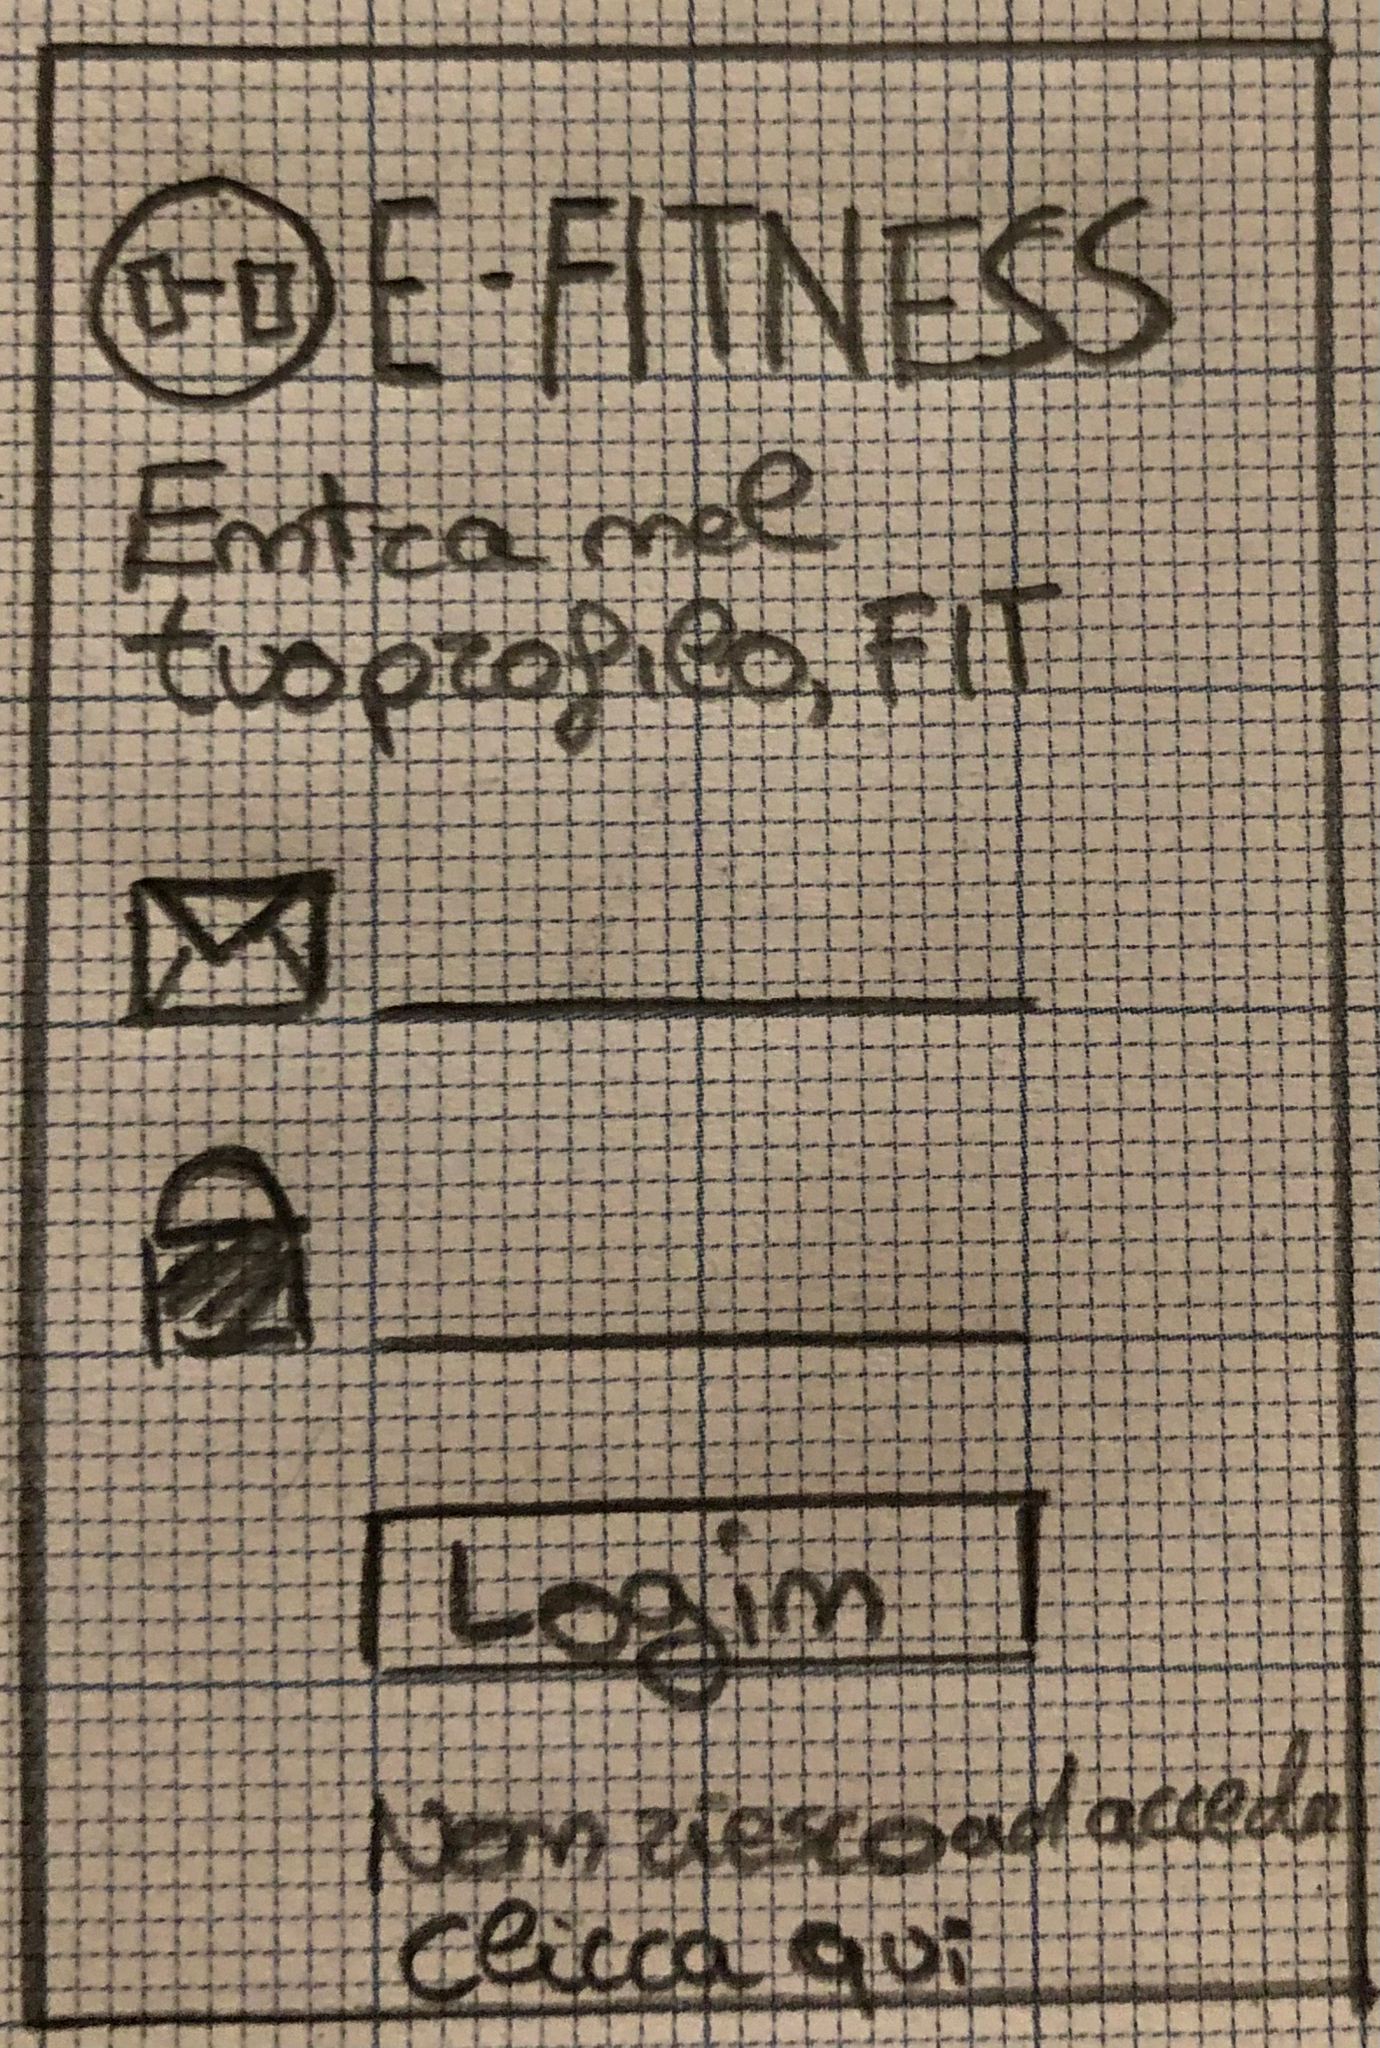 E-FITNESS
Entra nel
tuo profilo, FIT
Login
Non riesco ad acceder
Clicca qui